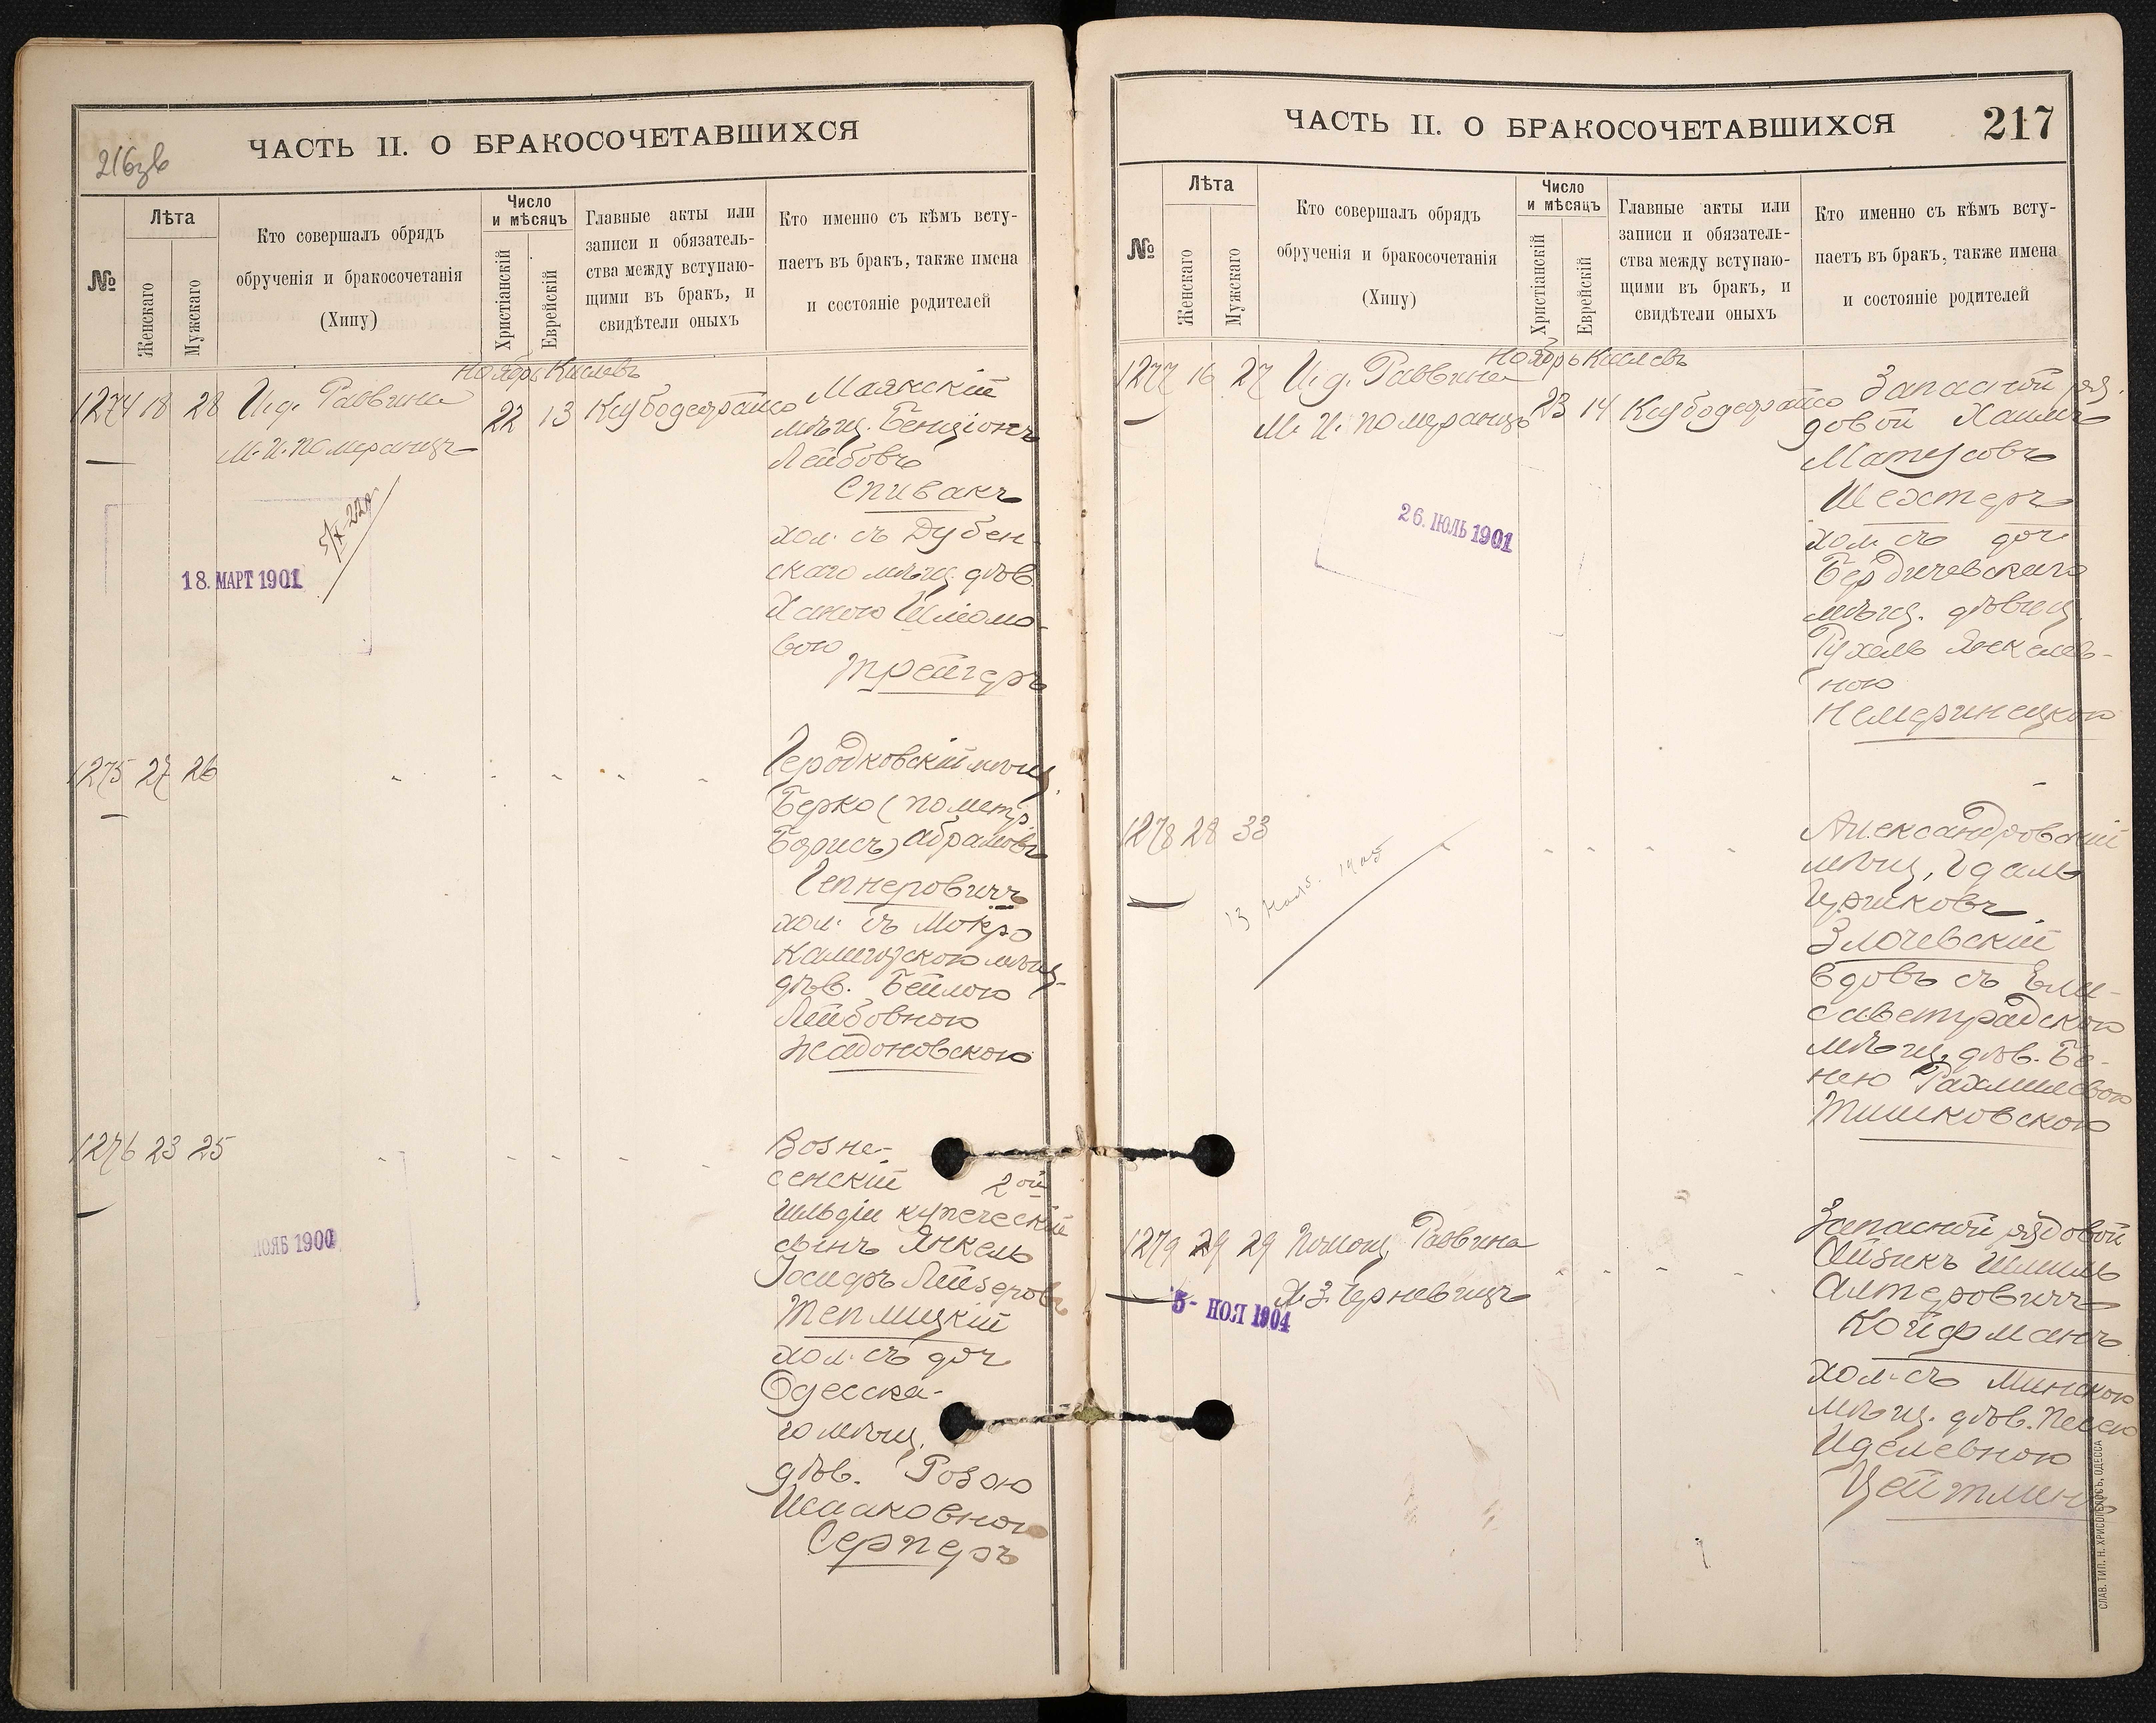 216зв
ЧАСТЬ II. О БРАКОСОЧЕТАВШИХСЯ
№
Лѣта
Женскаго
Мужскаго
Кто совершалъ обрядъ
обрученія и бракосочетанія
(Хипу)
Число
и мѣсяцъ
Христіанскій
Еврейскій
Главные акты или
записи и обязатель-
ства между вступаю-
щими въ бракъ, и
свидѣтели оныхъ
Кто именно съ кѣмъ всту-
паетъ въ бракъ, также имена
и состояніе родителей
Ноябрь Кислевъ
1274 18 28 И.д. Раввина
М. И. Померанцъ
22 13
Маякскій
мѣщ. Бенціонъ
Лейбовъ
Спивакъ
хол. съ Дубен-
скаго мѣщ. дѣв.
Ханою Шліомо-
вою
Трейгеръ
18. МАРТ 1901
1275 27 26
Городковскій мѣщ.
Берко (по метр.
Борисъ) Абрамовъ
Гепнеровичъ
хол. съ Мокро
Калигорскою мѣщ.
дѣв. Бейлою
Лейбовною
Жадоновскою
1276 23 25
Возне-
сенскій 2ой
гильдіи купеческій
сынъ Янкель
Іосифъ Лейзеровъ
Теплицкій
хол. съ доч
Одесска-
го мѣщ.
дѣв. Розою
Исааковною
Серперъ
НОЯБ 1900
ЧАСТЬ II. О БРАКОСОЧЕТАВШИХСЯ
217
№
Лѣта
Женскаго
Мужскаго
Кто совершалъ обрядъ
обрученія и бракосочетанія
(Хипу)
Число
и мѣсяцъ
Христіанскій
Еврейскій
Главные акты или
записи и обязатель-
ства между вступаю-
щими въ бракъ, и
свидѣтели оныхъ
Кто именно съ кѣмъ всту-
паетъ въ бракъ, также имена
и состояніе родителей
Ноябрь Кислевъ
1277 16 27 И.д. Раввина
М. И. Померанцъ
23 14
Запасной ря-
довой Хаимъ
Матусовъ
Шехтеръ
хол. съ доч.
Бердичевскаго
мѣщ. дѣвиц.
Рухель Янкелев-
ною
Немеринецкою
26. ІЮЛЬ 1901
1278 28 33
Александровскій
мѣщ. Удаль
Гершковъ
Злочевскій
вдовъ съ Ели-
саветградскою
мѣщ. дѣв. Бе-
нею Рахмилевою
Тишковскою
1279 29 29 Помощ. Раввина
Х. З. Черневицъ
Запасной рядовой
Айзикъ Шмиль
Алтеровичъ
Койфманъ
хол. съ Минскою
мѣщ. дѣв. Песею
Иделевною
Цейтлинъ
5- НОЯ 1904
СЛАВ. ТИП. Н. ХРИСОГЕЛОСЪ, ОДЕССА